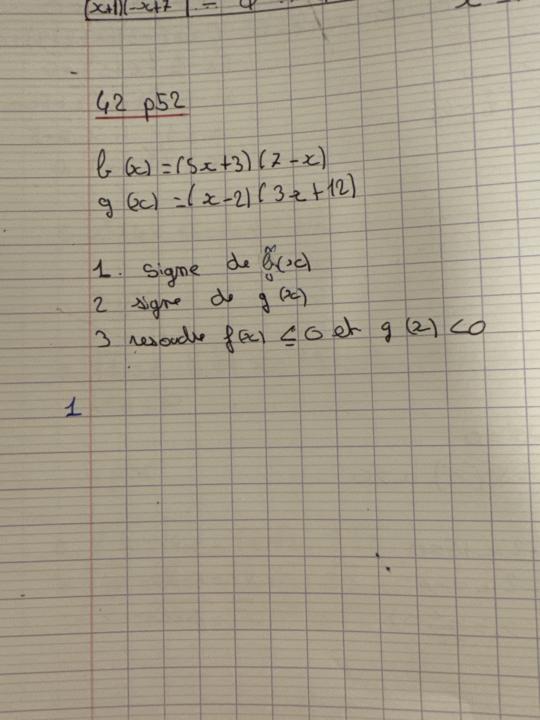 (x+1)(-x+7
42 p52
f (x) = (5x+3)(7-x)
g (x) = (x-2)(3x+12)
1. signe de f(x)
2 signe de g(x)
3 resoudre f(x) ≤ 0 et g(x) < 0
1